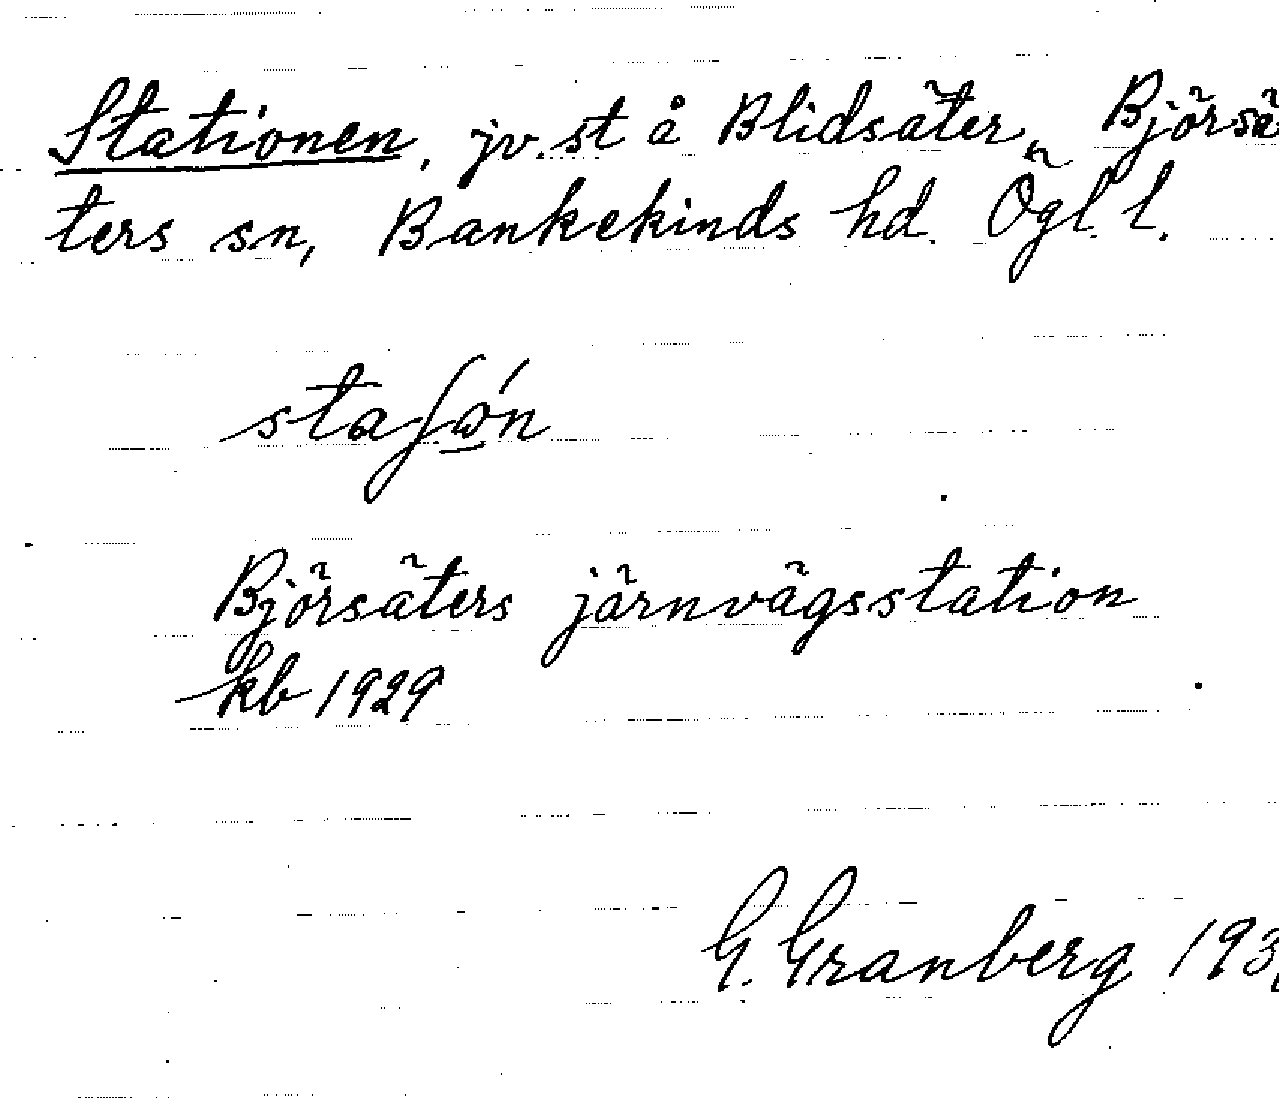 Stationen, jv.st å Blidsäter, Björsä
ters sn, Bankekinds hd. Ögl. l.
Björsäters järnvägsstation
kb 1929
G. Granberg 193